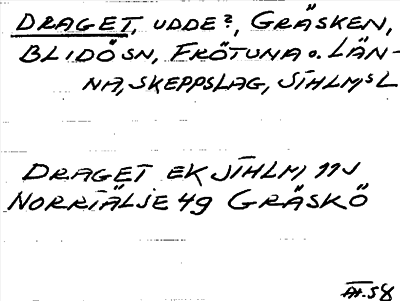 DRAGET, UDDE?, GRÄSKEN,
BLIDÖSN, FRÖTUNA o. LÄN-
NA, SKEPPSLAG, STHLMS L
DRAGET EK STHLM 11J
NORRTÄLJE 49 GRÄSKÖ